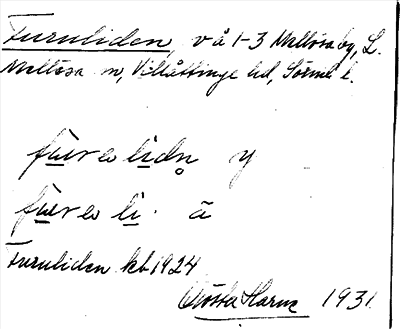 Furuliden, v å 1-3 Mellösa by, L.
Mellösa sn, Villåttinge hd, Sörml. l.
fu̲rɷli̲dn̥ y
fu̲rɷ li̲. ä
Furuliden kb 1924
Gösta 1931